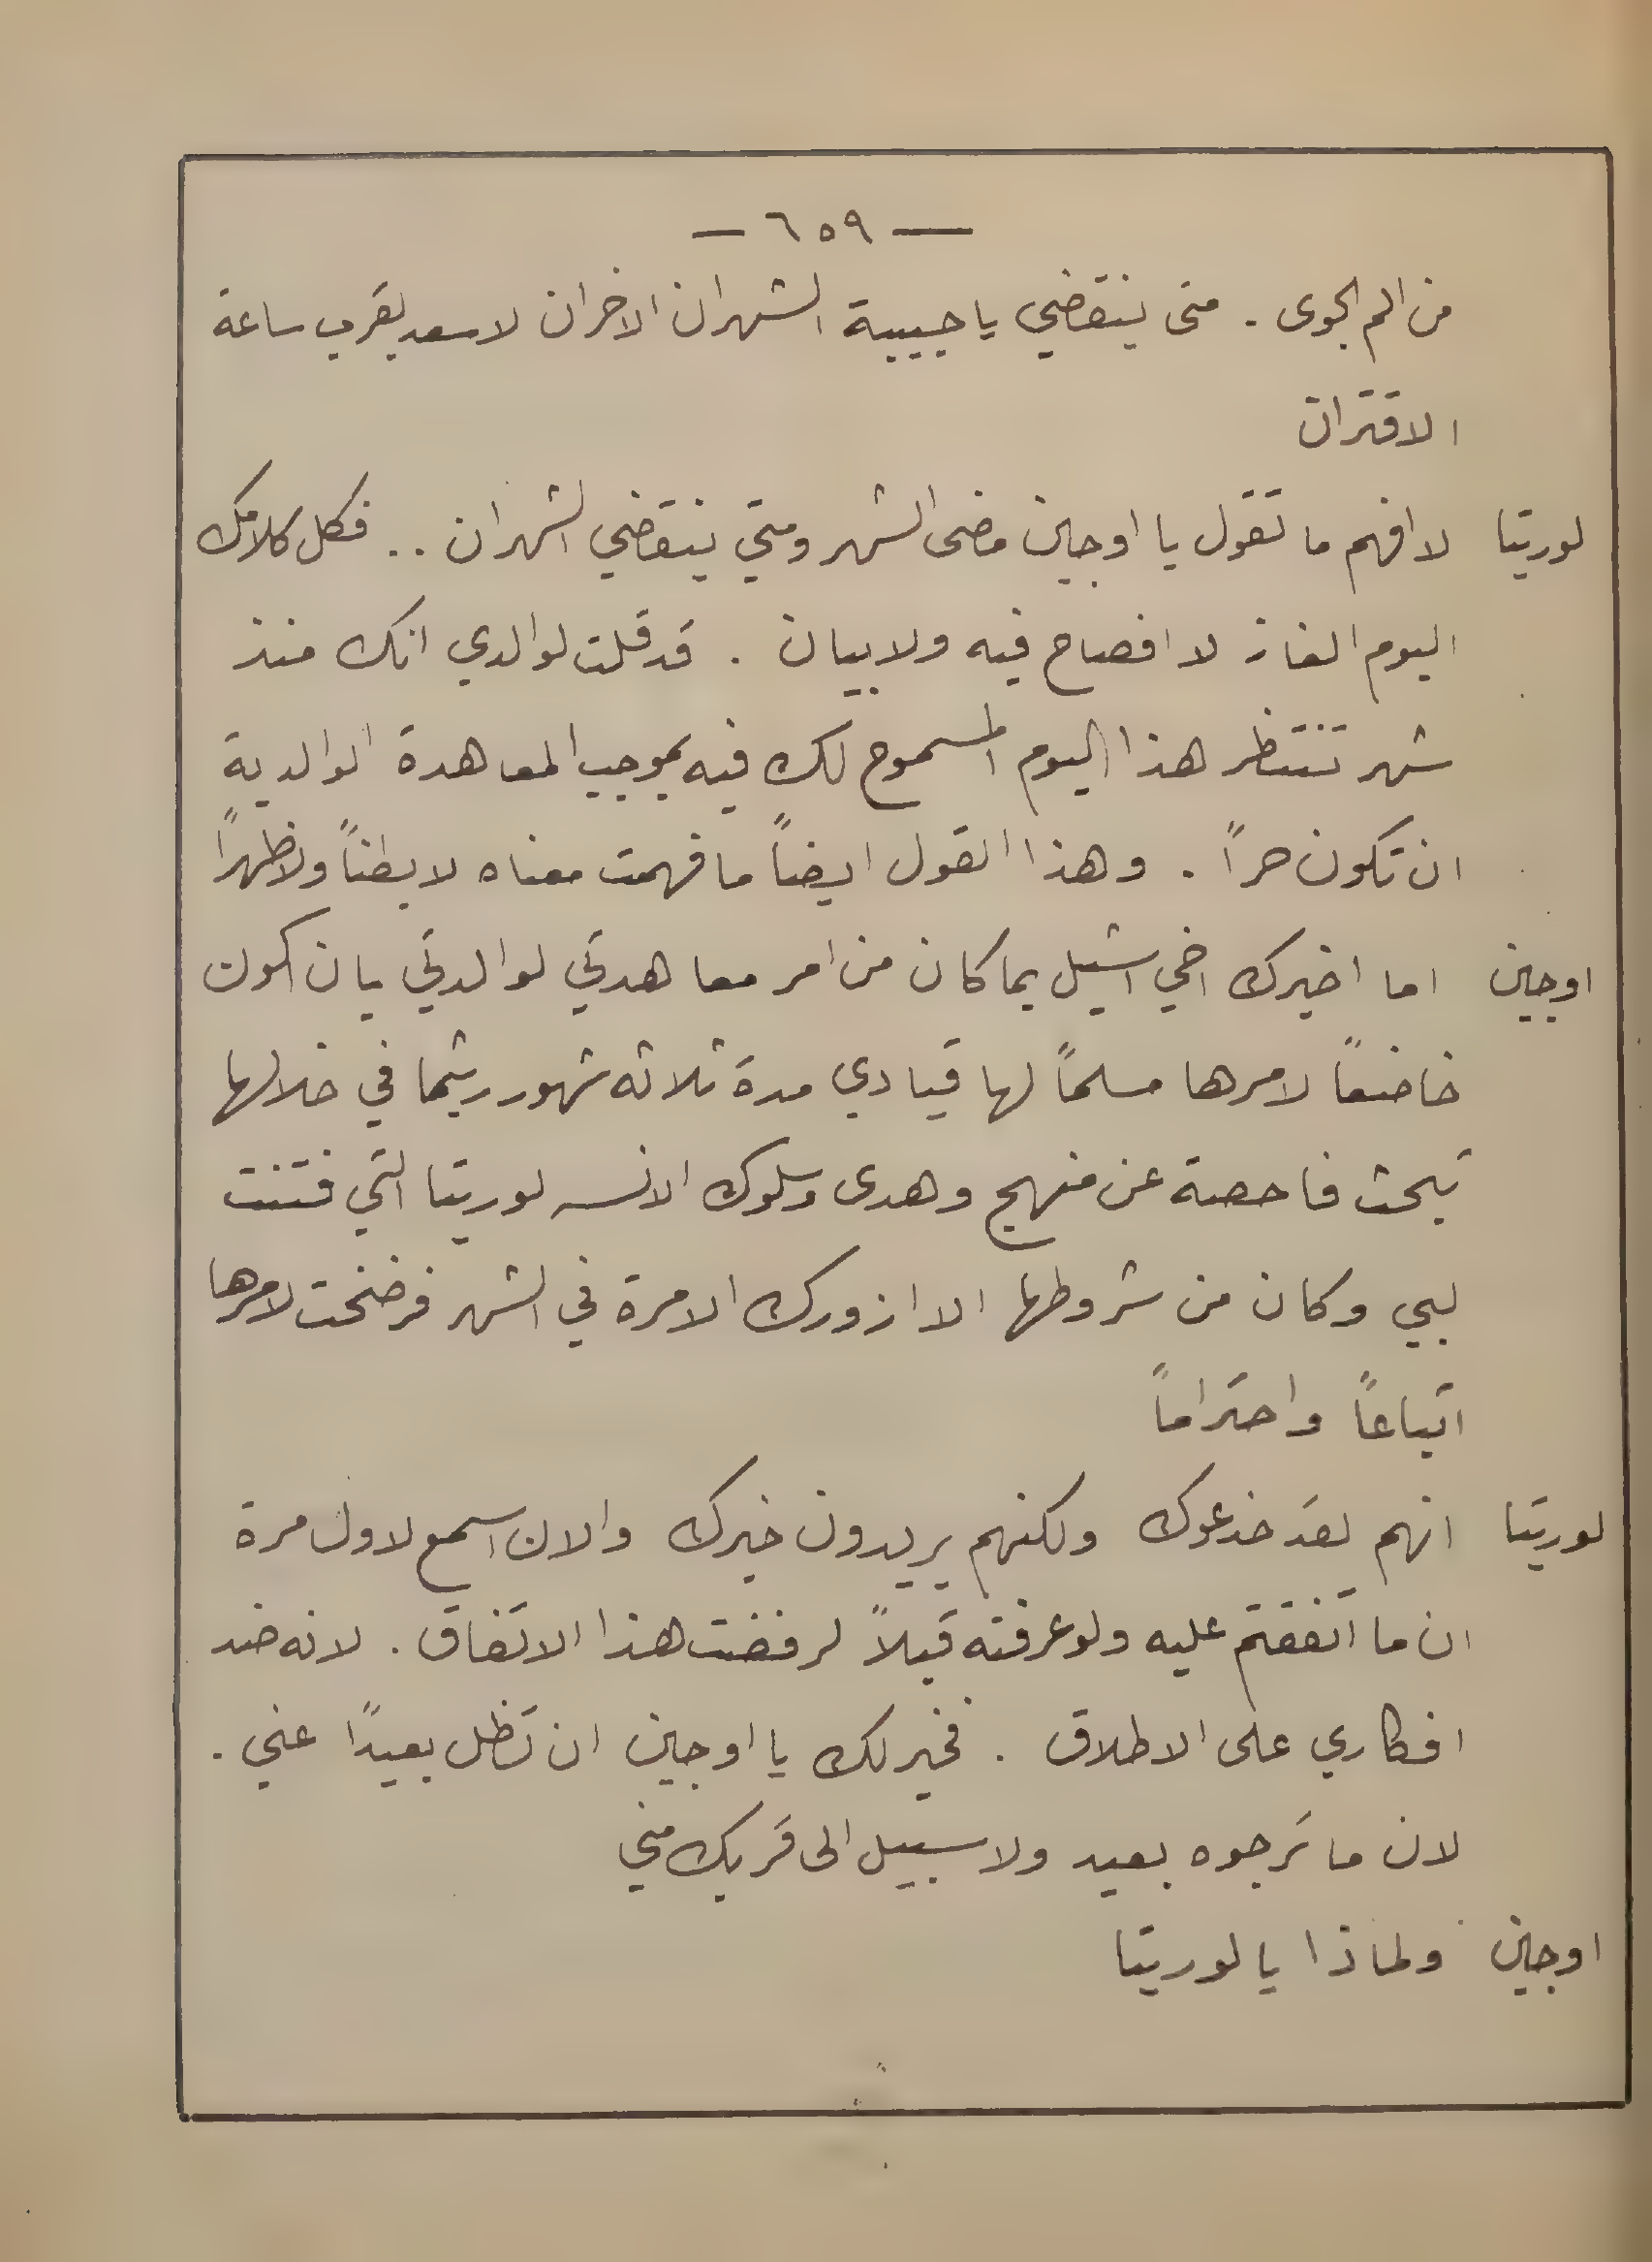 — ٦٥٩ —
من الم الجوى . متى ينقضي يا حبيبة الشهران الاخران لاسعد بقرب ساعة
الاقتران
لوريتا لا افهم ما تقول يا اوجين مضى الشهر ومتي ينقضي الشهران .. فكل كلامك
اليوم الغاز لا افصاح فيه ولا بيان . قد قلت لوالدي انك منذ
شهر تنتظر هذا اليوم المسموح لك فيه بموجب المعاهدة الوالدية
ان تكون حراً . وهذا القول ايضاً ما فهمت معناه لا بطناً ولا ظهراً
اوجين اما اخبرك اخي اشيل بما كان من امر معاهدتي لوالدتي بان اكون
خاضعاً لامرها مسلماً لها قيادي مدة ثلاثه شهور ريثما في خلالها
تبحث فاحصة عن منهج وهدى وسلوك الانسه لوريتا التي فتنت
لبي وكان من شروطها الا ازورك الا مرة في الشهر فرضخت لامرها
اتباعاً واحتراماً
لوريتا انهم لقد خدعوك ولكنهم يريدون خيرك والان اسمع لاول مرة
ان ما اتفقتم عليه ولو عرفته قبلاً لرفضت هذا الاتفاق . لانه ضد
افكاري على الاطلاق . فخير لك يا اوجين ان تظل بعيداً عني .
لان ما ترجوه بعيد ولا سبيل الى قربك مني
اوجين ولماذا يا لوريتا